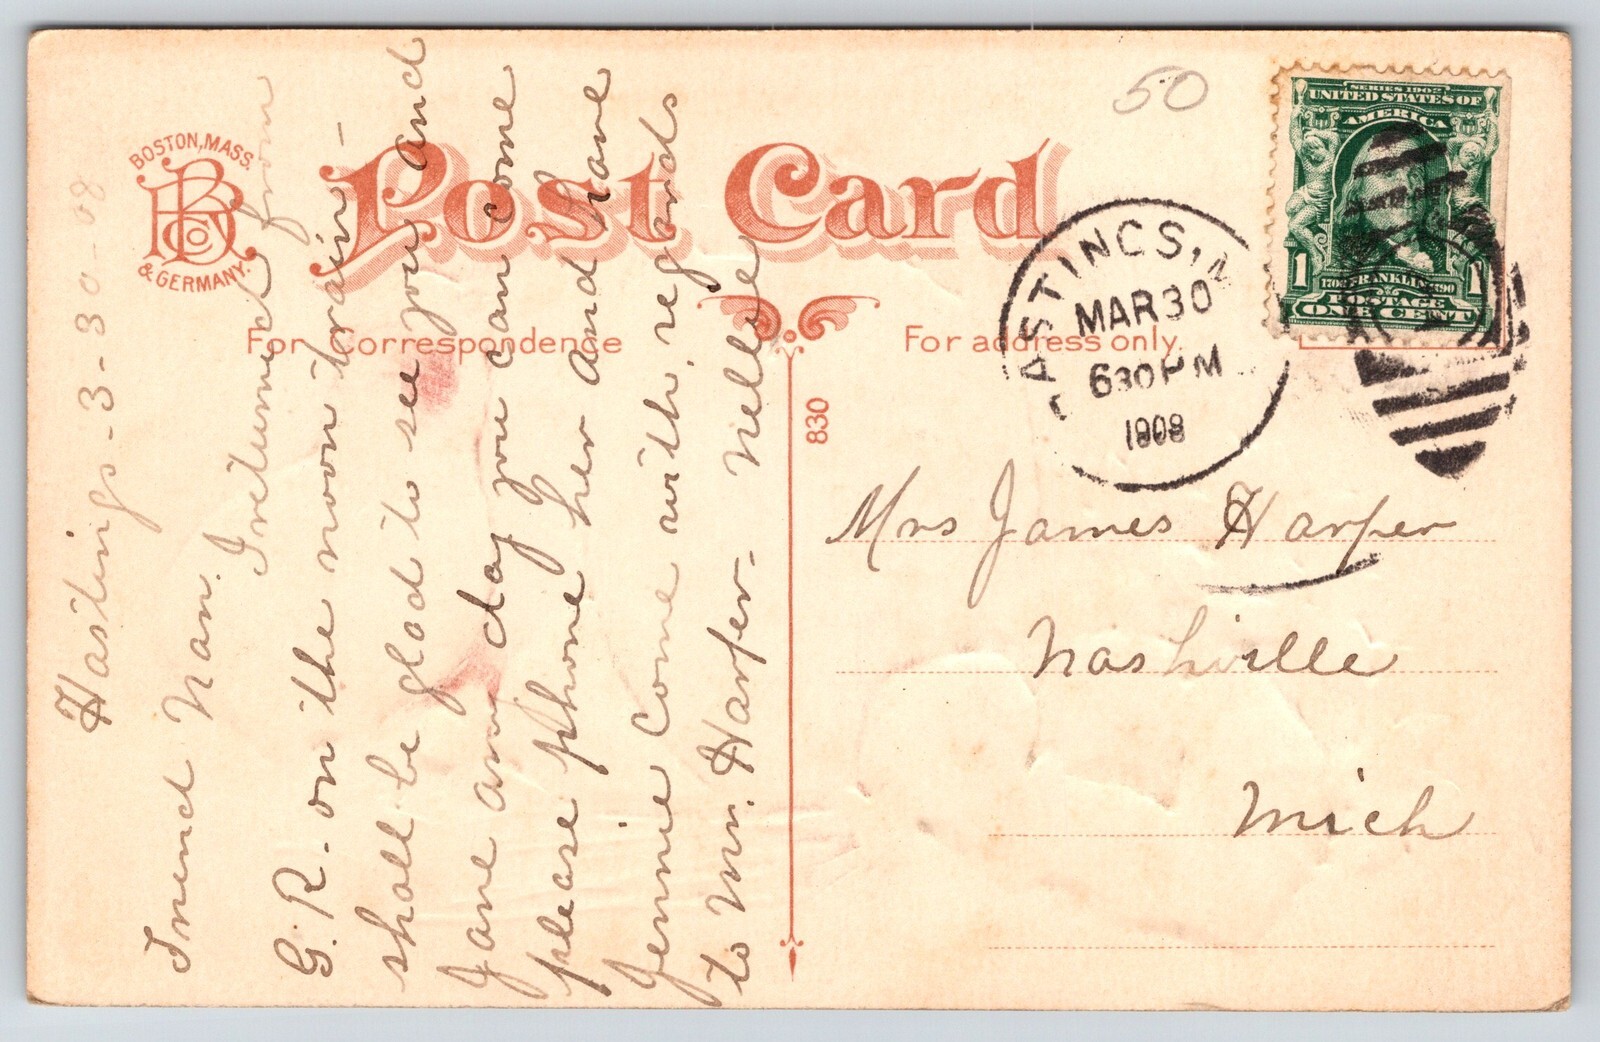 50
BOSTON, MASS.
& GERMANY.
Post Card
For Correspondence
For address only.
830
SERIES 1902
UNITED STATES OF
AMERICA
1 1
FRANKLIN
POSTAGE
ONE CENT
HASTINGS, M
MAR 30
630 PM
1908
Hastings - 3-30-08
Friend Nan.
I returned from
G. R. on the noon train -
shall be glad to see you and
Jane any day you can come
please phone her and have
Jennie come with, regards
to Mr. Harper - Nellie
Mrs James Harper
Nashville
Mich